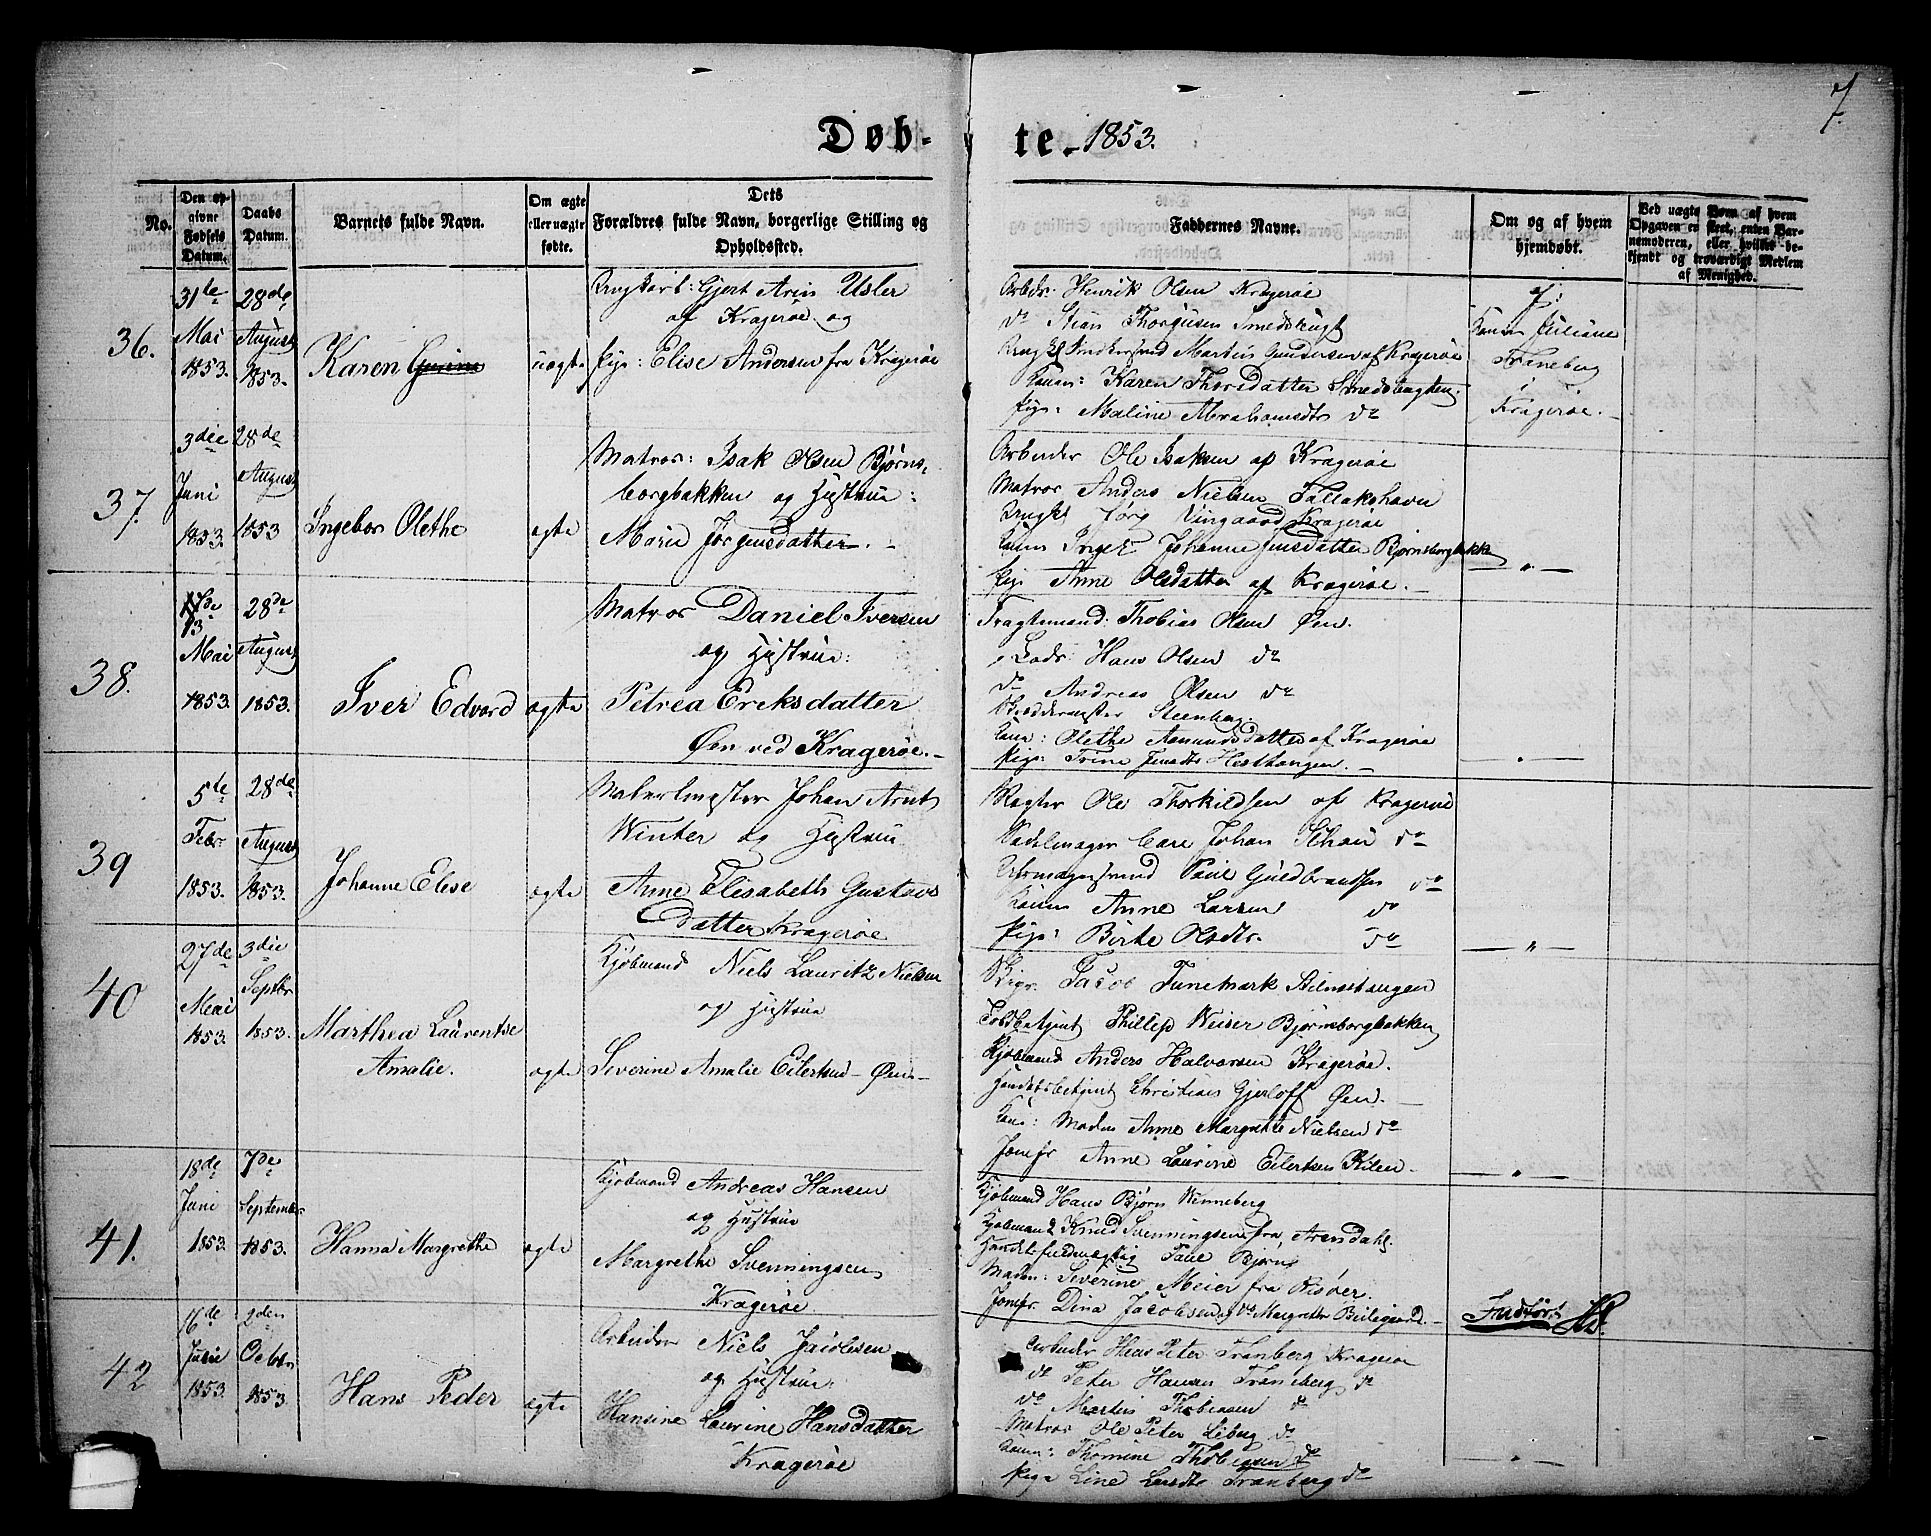 7.
Døb-
te. 1853.
No.
Den op-
givne
Fødsels
Datum.
Daabs
Datum.
Barnets fulde Navn.
Om ægte
eller uægte
fødte.
Dets
Forældres fulde Navn, borgerlige Stilling og
Opholdssted.
Faddernes Navne.
Om og af hvem
hjemdøbt.
Ved uægte Børn af hvem
Opgaven er skeet, enten Bar-
nemoderen, eller hvilket be-
kjendt og troværdigt Medlem
af Menighed.
36.
31te
Mai
1853.
28de
August
1853.
Karen Gurine
uægte
Gjert Arin Usler
af Kragerøe og
Pige: Elise Andersen fra Kragerøe
Arbdr: Henrik Olsen Kragerøe
do Stian Thorgusen Smedsbugt
Martin Gundersen af Kragerøe
Kone: Karen Thorsdatter Smedsbugten.
Pige: Maline Abrahamsdtr do
J:
Konen Juliane
Traneberg
i
Kragerøe.
37.
3die
Juni
1853.
28de
August
1853
Ingebor Olethe
ægte
Matros: Isak Olsen Bjørns-
borgbakken og Hustrue:
Marie Jørgensdatter.
Arbeider Ole Isaksen af Kragerøe
Matros Anders Nielsen Tallakshavn
Jørg Vingaard Kragerøe
Kone Inger Johanne Jensdatter Bjørnsborgbakk
Pige Anne Olsdatter af Kragerøe.
"
38.
13
Mai
1853.
28de
August
1853.
Iver Edvard
ægte
Matros Daniel Iversen
og Hustrue:
Petrea Eriksdatter
Øen ved Kragerøe.
Fragtemand: Thobias Olsen Øen.
Lods: Hans Olsen do
do Andreas Olsen do
Steenberg.
Kone: Olethe Asmundsdatter af Kragerøe
Pige: Trine Jensdtr
"
39
5te
Febr.
1853.
28de
August
1853.
Johanne Elise
ægte
Malermester Johan Arnt
Winter og Hustrue
Anne Elisabeth Gustavs
Datter Kragerøe
Vægter Ole Thorkildsen af Kragerøe
Sadelmager Carl Johan Schau do
Urmagersvend Paul Guldbrandsen do
Konen Anne Larsen do
Pige: Birte Olsdtr. do
"
40
27de
Mai
1853.
3die
Septbr
1853.
Marthea Laurentse
Amalie.
ægte
Kjøbmand Niels Lauritz Nielsen
og Hustrue
Severine Amalie Eilertsen - Øen -
Jacob Tunemark Stilnestangen
Toldbetjent Phillip Weiser Bjørnsborgbakken
Kjøbmand Anders Halvorsen Kragerøe.
Handelsbetjent Christian Gjerloff Øen.
Kone: Madm Anne Margrethe Nielsen do
Jomfr Anne Laurine Eilertsen Kilen
"
41.
18de
Juni
1853.
7de
September
1853.
Hanna Margrethe
ægte
Kjøbmand Andreas Hansen
og Hustrue
Margrethe Svenningsen
Kragerøe.
Kjøbmand Hans Bjørn Wenneberg
Kjøbmand Knud Svenningsen fra Arendahl.
Handelsfuldmægtig Paul Bjørn
Madm: Severine Meier fra Risøer.
Jomfr. Dina Jacobsen og do Margrethe
Indført
42
16de
1853.
2den
Octbr
1853.
Hans Peder
ægte
Arbeider Niels Jacobsen
og Hustrue:
Hansine Laurine Hansdatter
Kragerøe
Arbeider Hans Peter Tranberg Kragerøe
do Peter Hansen Traneberg do
do Martin Thobiassen do
Matros Ole Peter Liberg do
Kone: Thomine Thobiassen do
Pige Line Larsdtr Tranberg do
"